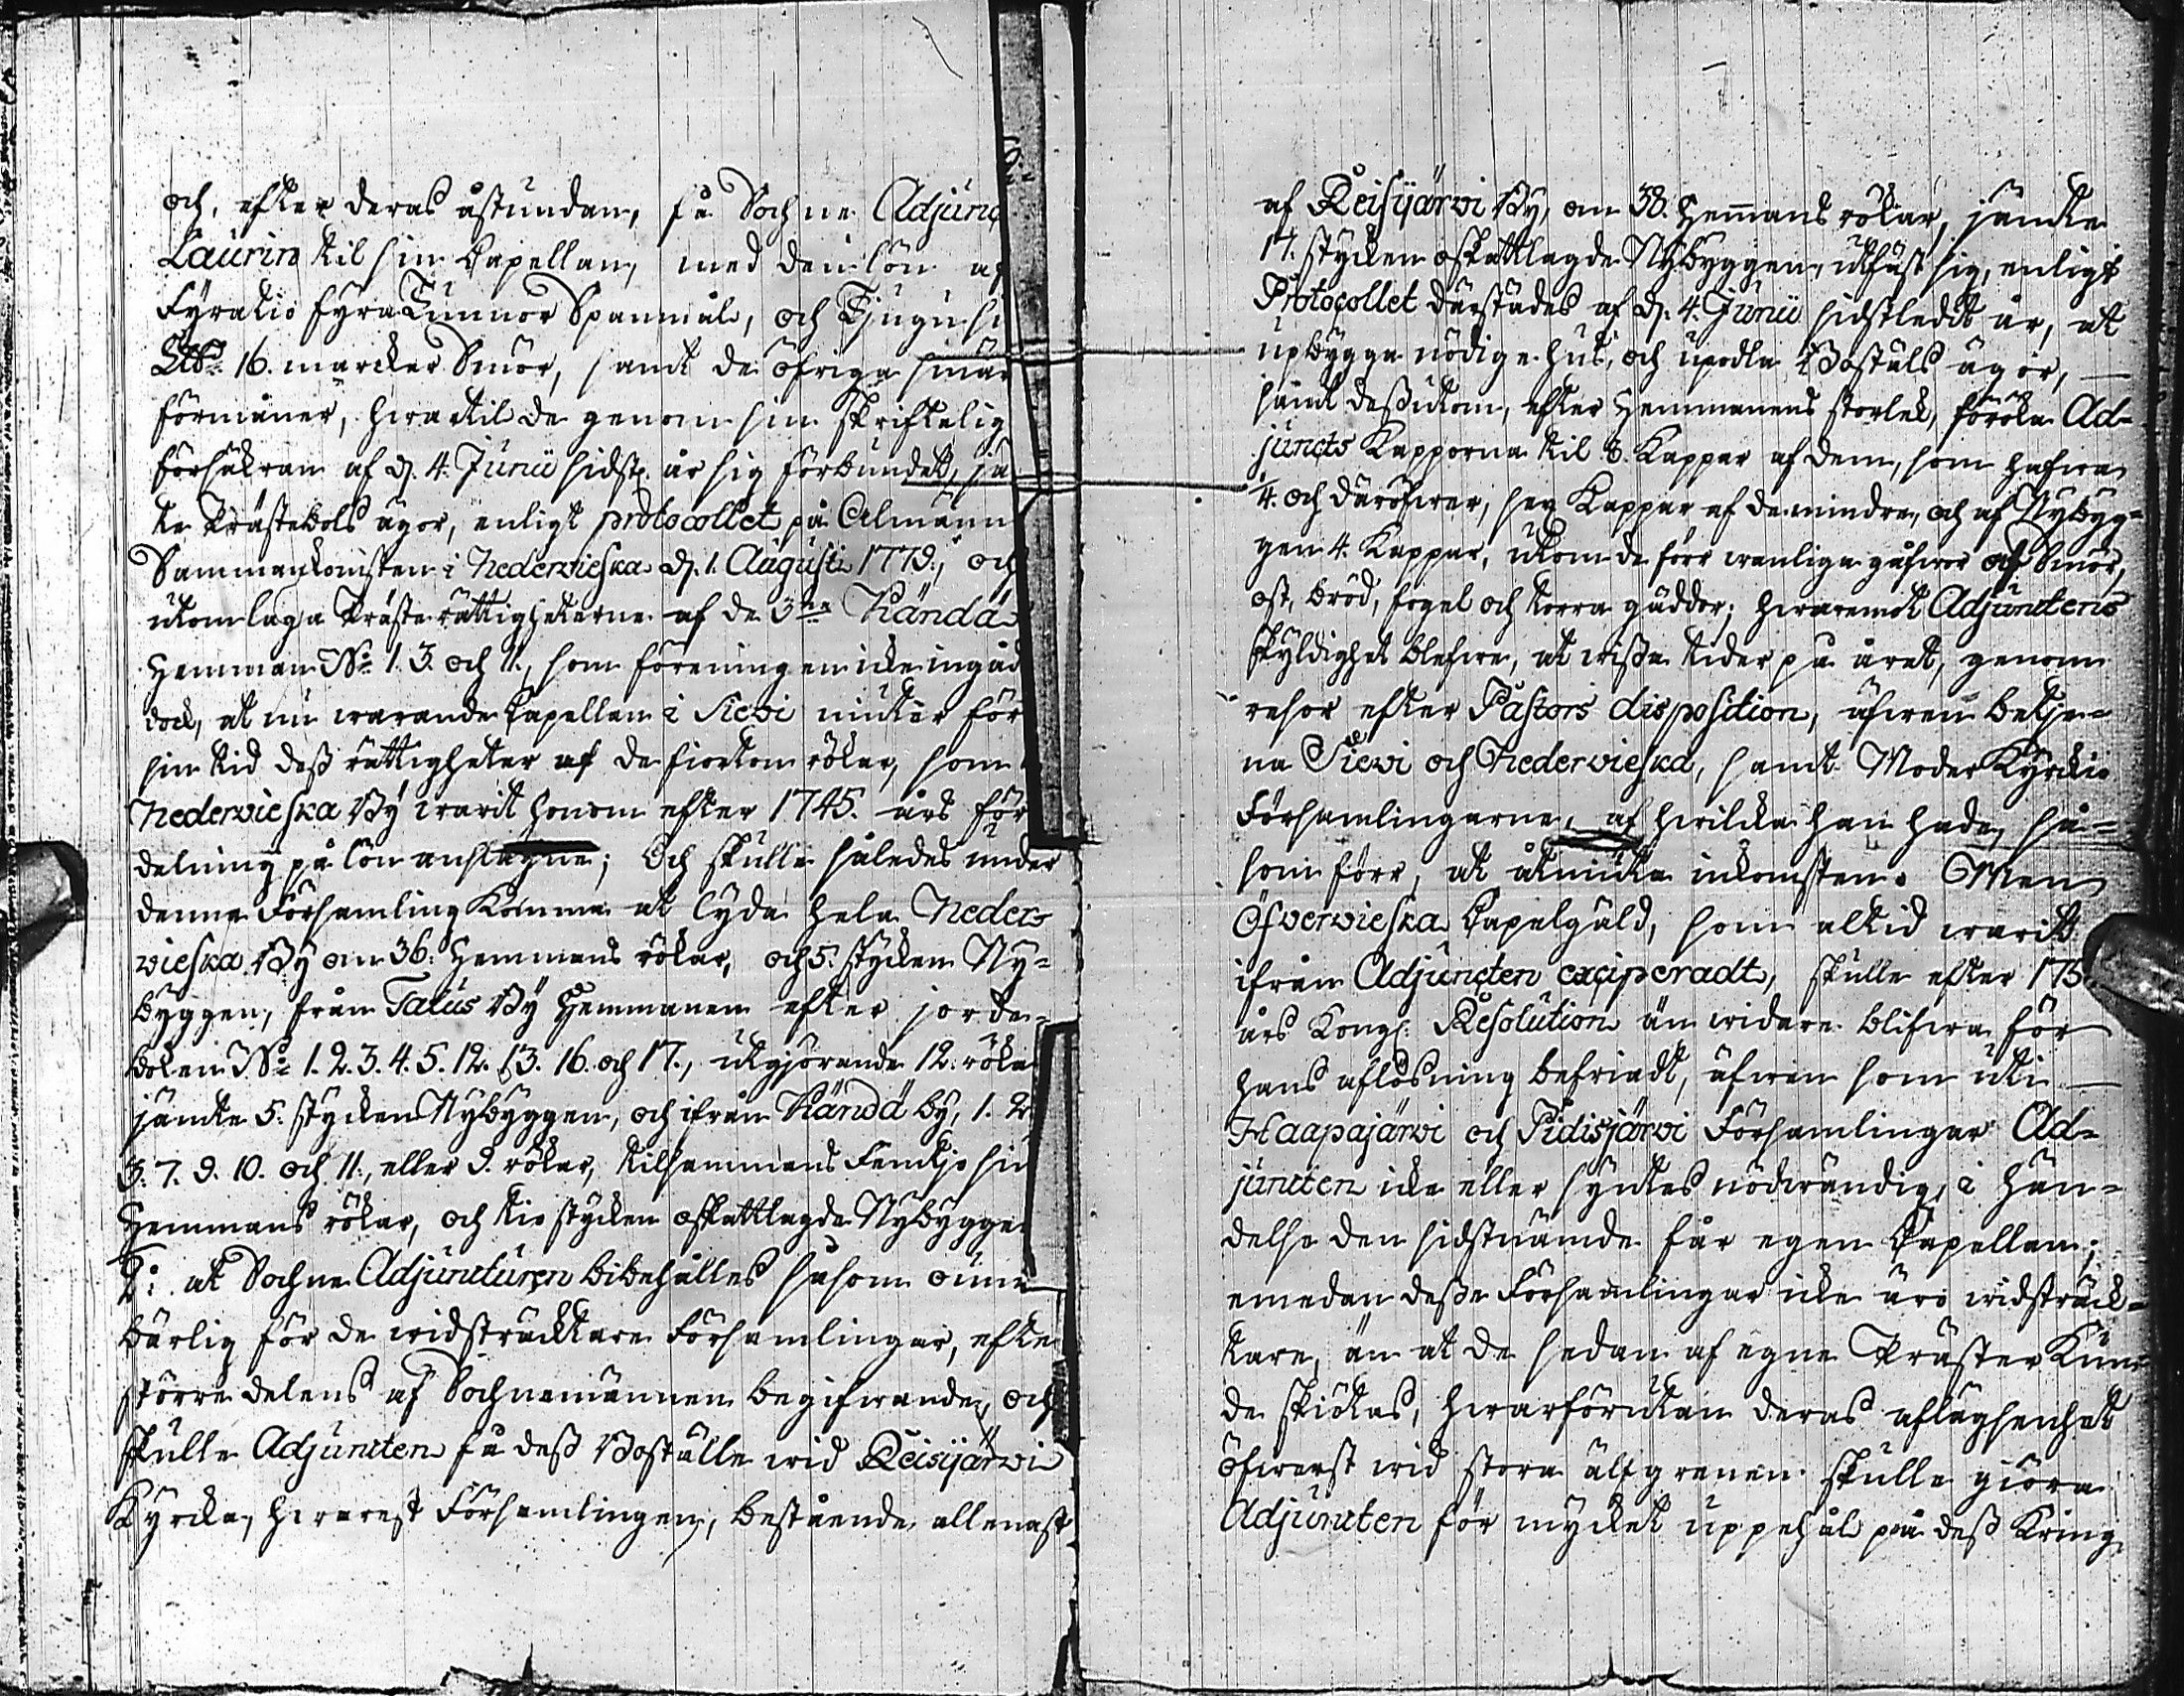 och, efter deras åstundan, få Sochne Adjunc
Laurin til sin Capellan, med den lön af
Fyratio fyra Tunnor Spanmål, och Tjugu
16. marcker Smör, samt de öfriga små
förmåner, hwartil de genom sin skriftelig
försäkran af d. 4. Junii sidstl. år sig förbundet,
te Prästebols ägor, enligt protocollet på Almänn
Sammankomsten i Nedervieska d. 1. Augusti 1779., och
utom laga Präste rättigheterne af de 3ne Kändä
Hemman No. 1. 3. och 11., som föreningen icke ingåd
dock, at nu warande Capellan i Siewi niuter för
sin tid deß rättigheter af de fiorton rökar, som
Nedervieska By warit honom efter 1745. års för
delning på lön anslagne; Och skulle således under
denna Församling komma at lyda hela Neder-
vieska By om 36. Hemmans rökar, och 5. stycken Ny-
byggen, från Talus By Hemmanen efter jorde-
boken No. 1. 2. 3. 4. 5. 12. 13. 16. och 17., utgjörande 12. röka
jämte 5. stycken Nybyggen, och ifrån Kändä by, 1. 2.
3. 7. 9. 10. och 11., eller 9. rökar, tilsammans Femtjo siu
Hemmans rökar, och tio stycken oskattlagde Nybygge
2: at Sochne Adjuncturen bibehålles såsom oum
bärlig för de widsträcktare Församlingar, efte
större delens af Sochnemännen begifwande, och
skulle Adjuncten få deß Boställe wid Reisijärwi
Kyrcka, hwarest Församlingen, bestående allenast
af Reisijärwi By, om 38. Hemans rökar, jämte
17. stycken oskattlagde Nybyggen, utfäst sig, enligt
Protocollet därstädes af d. 4. Junii sidstledit år, at
upbygga nödige hus, och upodla Boställs ägor,
samt deßutom, efter Hemmanens storlek, föröka Ad-
juncts Kapporna til 8. Kappar af dem, som hafwa
1/4. och däröfwer, sex Kappar af de mindre, och af Nybyg-
gen 4. Kappar, utom de förr wanliga gåfwor af Smör,
ost, bröd, fogel och torra gäddor; hwaremot Adjunctens
skyldighet blefwe, at wißa tider på året, genom
resor efter Pastors disposition, äfwen betje-
na Siewi och Nedervieska, samt Moder Kyrckio
Församlingarne, af hwilcka han hade, så-
som förr, at åtniuta inkomsten. Men
Öfvervieska Capelgäld, som altid warit
ifrån Adjuncten exciperadt, skulle efter 175
års Kongl. Resolution än widare blifwa för
hans aflösning befriadt, äfwen som uti
Haapajärwi och Pidisjärwi Församlingar Ad-
juncten icke eller syntes nödwändig, i hän-
delse den sidstnämde får egen Capellan;
emedan deße Församlingar icke äro widsträck-
tare, än at de sedan af egne Präster kun-
de skiötas, hwarförutan deras aflägsenhet
öfwerst wid stora älfgrenen skulle giöra
Adjuncten för mycket uppehål på deß Kring